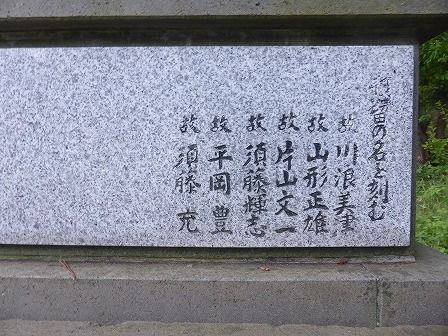 の名を刻む
故 川浪美津
故 山形正雄
故 片山文一
故 須藤輝志
故 平岡 豊
故 須藤 充